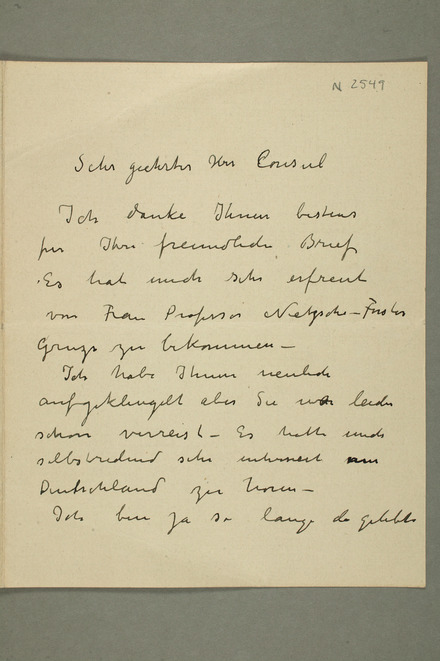 N 2549
Sehr geehrter Herr Consul
Ich danke Ihnen bestens
für Ihre freundliche Brief
Es hat mich sehr erfreut
von Frau Professor Nietzsche-Förster
Grüsse zu bekommen –
Ich habe Ihnen neulich
aufgeklingelt aber Sie war leider
schon verreist – Es hatte mich
selbstredend sehr interessiert
Deutschland zu hören –
Ich bin ja so lange da gelebt